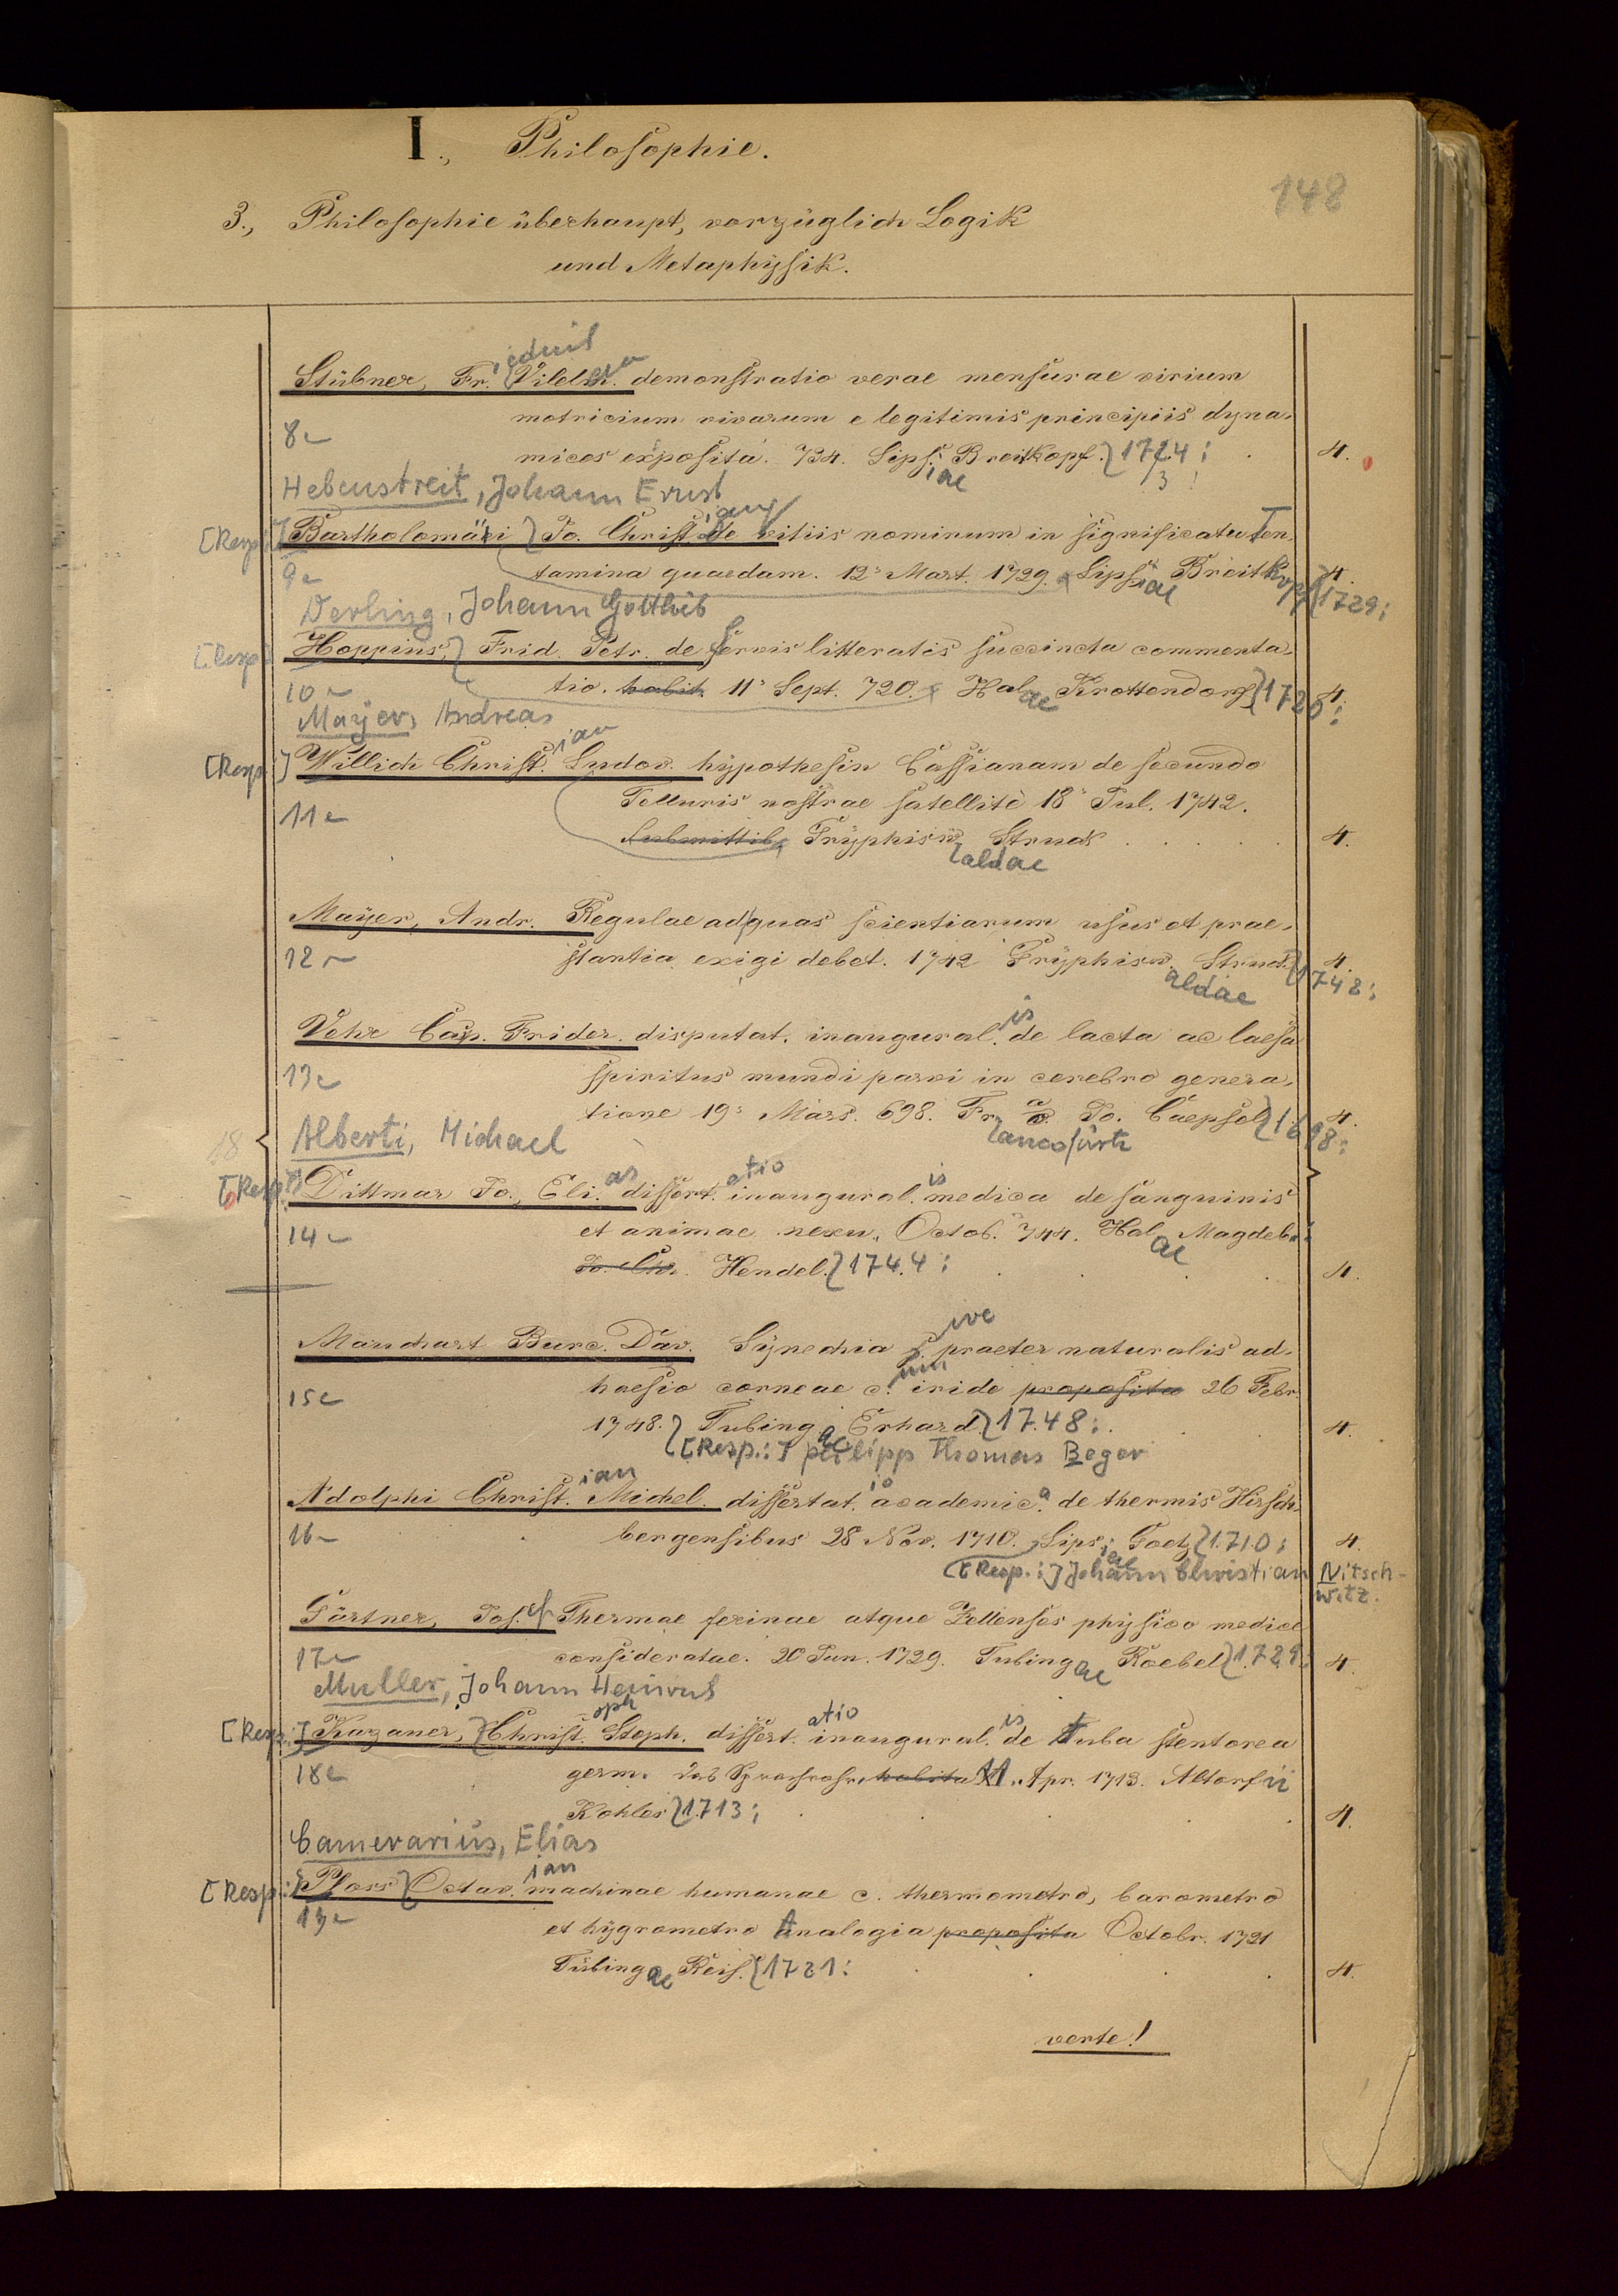 I., Philosophie.
148
3., Philosophie überhaupt, vorzüglich Logik
und Metaphysik.
Stübner, Fr. Vilelm. demonstratio verae mensurae virium
8
motricium vivarum e legitimis principiis dyna-
micos exposita. 734. Lipsiae Breitkopf. 1724; 3! 4.
Hebenstreit, Johann Ernst
[Resp.] Bartholomäi Jo. Christ. de vitiis nominum in significatu Ten-
9
tamina quaedam. 12 Mart. 1729. Lipsiae Breitkopf 1729; 4.
Derling, Johann Gottlieb
[Resp.] Hoppius, Frid. Petr. de servis litteratis succincta commenta-
10
tio. habit. 11 Sept. 720. Halae Krottendorf 1720; 4.
Mayer, Andreas
[Resp.] Willich Christian Ludov. hypothesin Cassianam de secundo
11
Telluris nostrae satellite 18 Jul. 1742.
submittit Gryphiswaldae Struck 4.
Mayer, Andr. Regulae ad quas scientiarum usus et prae-
12
stantia exigi debet. 1742 Gryphiswaldae Struck 1742; 4.
Vehr Frider. disputat. inauguralis de laeta ac laesa
13
spiritus mundi parvi in cerebro genera-
tione 19 Mars. 698. Francofurti a/O. Jo. Caepsel 1698; 4.
Alberti, Michael
18
[Resp.] Dittmar Jo. Elias dissertatio inauguralis medica de sanguinis
14
et animae nexu, Octob. 744. Halae Magdeb.
Jo. Chr. Hendel. 1744; 4.
Mauchart Burc. Dav. Synechia sive praeter naturalis ad-
15
haesio corneae cum iride proposita 26 Febr.
1748. Tubingae Erhard 1748; 4.
[Resp.:] Philipp Thomas Beger
Adolphi Christian Michel. dissertatio academica de thermis Hirsch-
16
bergensibus 28 Nov. 1710. Lipsiae Goetz 1710; 4.
[Resp.:] Johann Christian Nitsch-
witz.
Gärtner, Josef Thermae ferinae atque Zellenses physico medice
17
consideratae. 20 Jun. 1729. Tubingae Roebel 1729 4.
Muller, Johann Heinrich
[Resp.:] Kazaner, Christoph Steph. dissertatio inauguralis de tuba stentorea
18
germ. das Sprachrohr, habita 11. Apr. 1713. Altorfii
Kohles 1713; 4.
Camerarius, Elias
[Resp.:] Pfass Octavian machinae humanae c. thermometro, barometro
19
et hygrometro Analogia proposita Octobr. 1721
Tübingae Reis. 1721: 4.
verte!